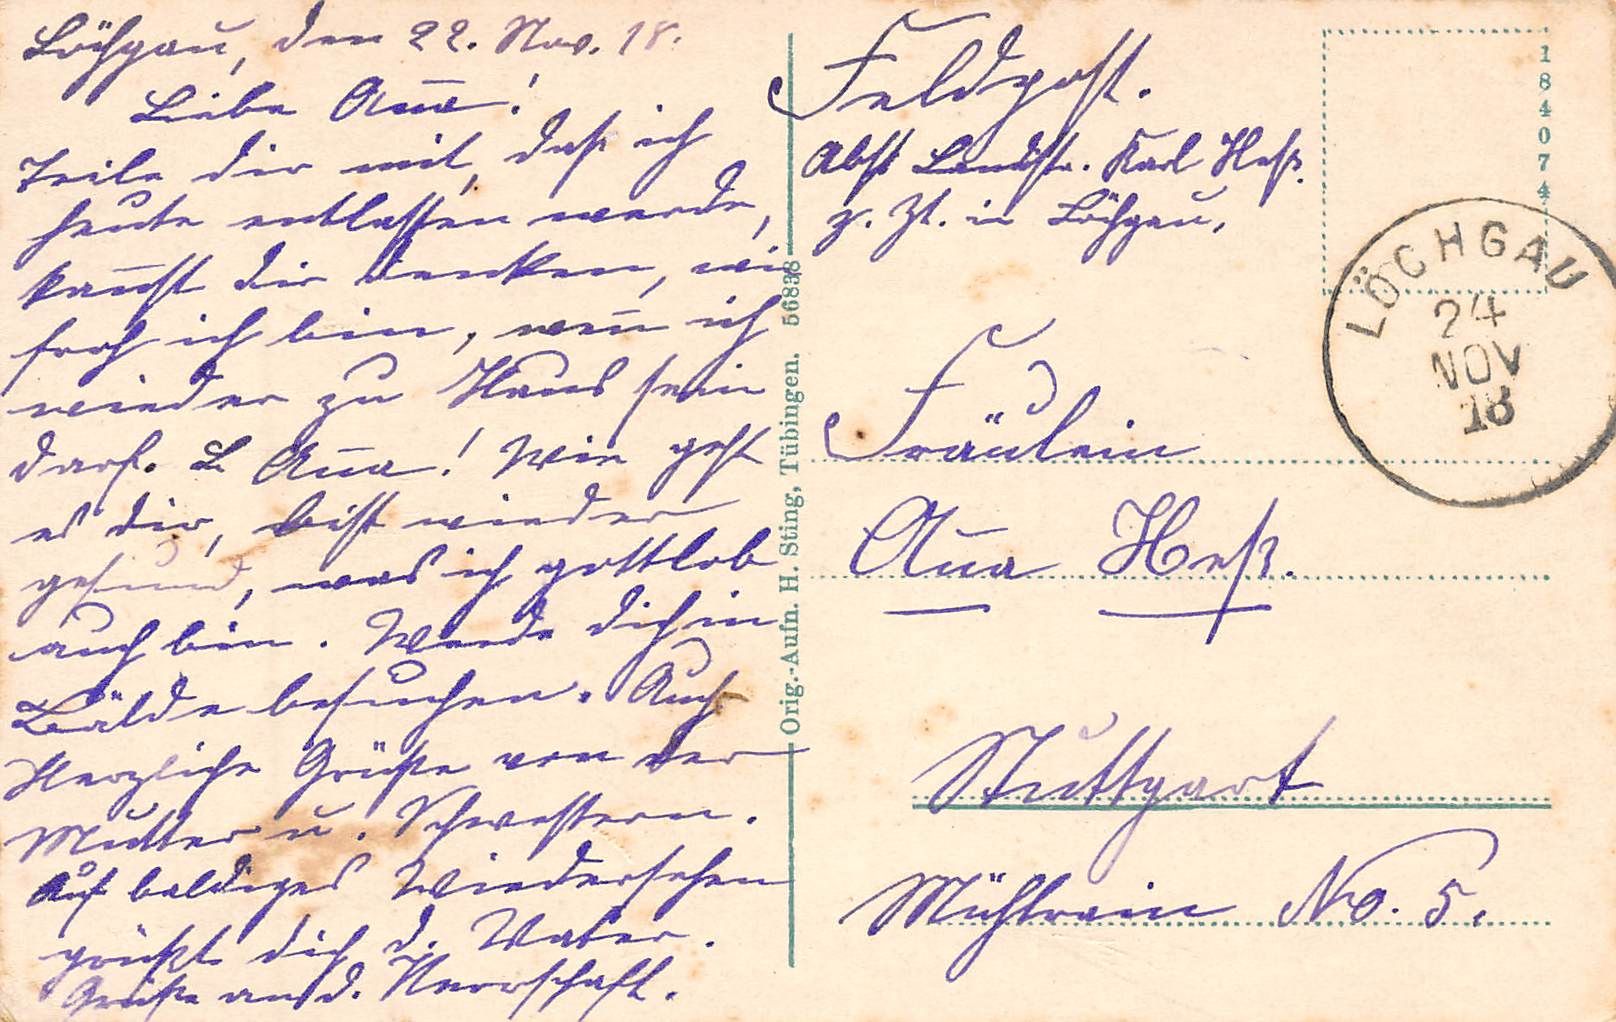 Löchgau, den 22. Nov. 18.
Liebe Anna!
Teile dir mit, daß ich
heute entlassen werde,
kannst dir denken, wie
froh ich bin, wenn ich
wieder zu Haus sein
darf. L. Anna! Wie geht
es dir, bist wieder
gesund, was ich gottlob
auch bin. Werde dich in
Bälde besuchen. Auch
Herzliche Grüße von der
Mutter u. Schwestern.
Auf baldiges Wiedersehen
grüßt dich d. Vater.
Grüße an d. Herrschaft.
Orig.-Aufn. H. Sting, Tübingen. 56838
Feldpost.
Abst. Landstr. Karl Heß.
z. Zt. in Löchgau,
184074
LÖCHGAU
24
NOV
18
Fräulein
Anna Heß.
Stuttgart
Mühlrain No. 5.